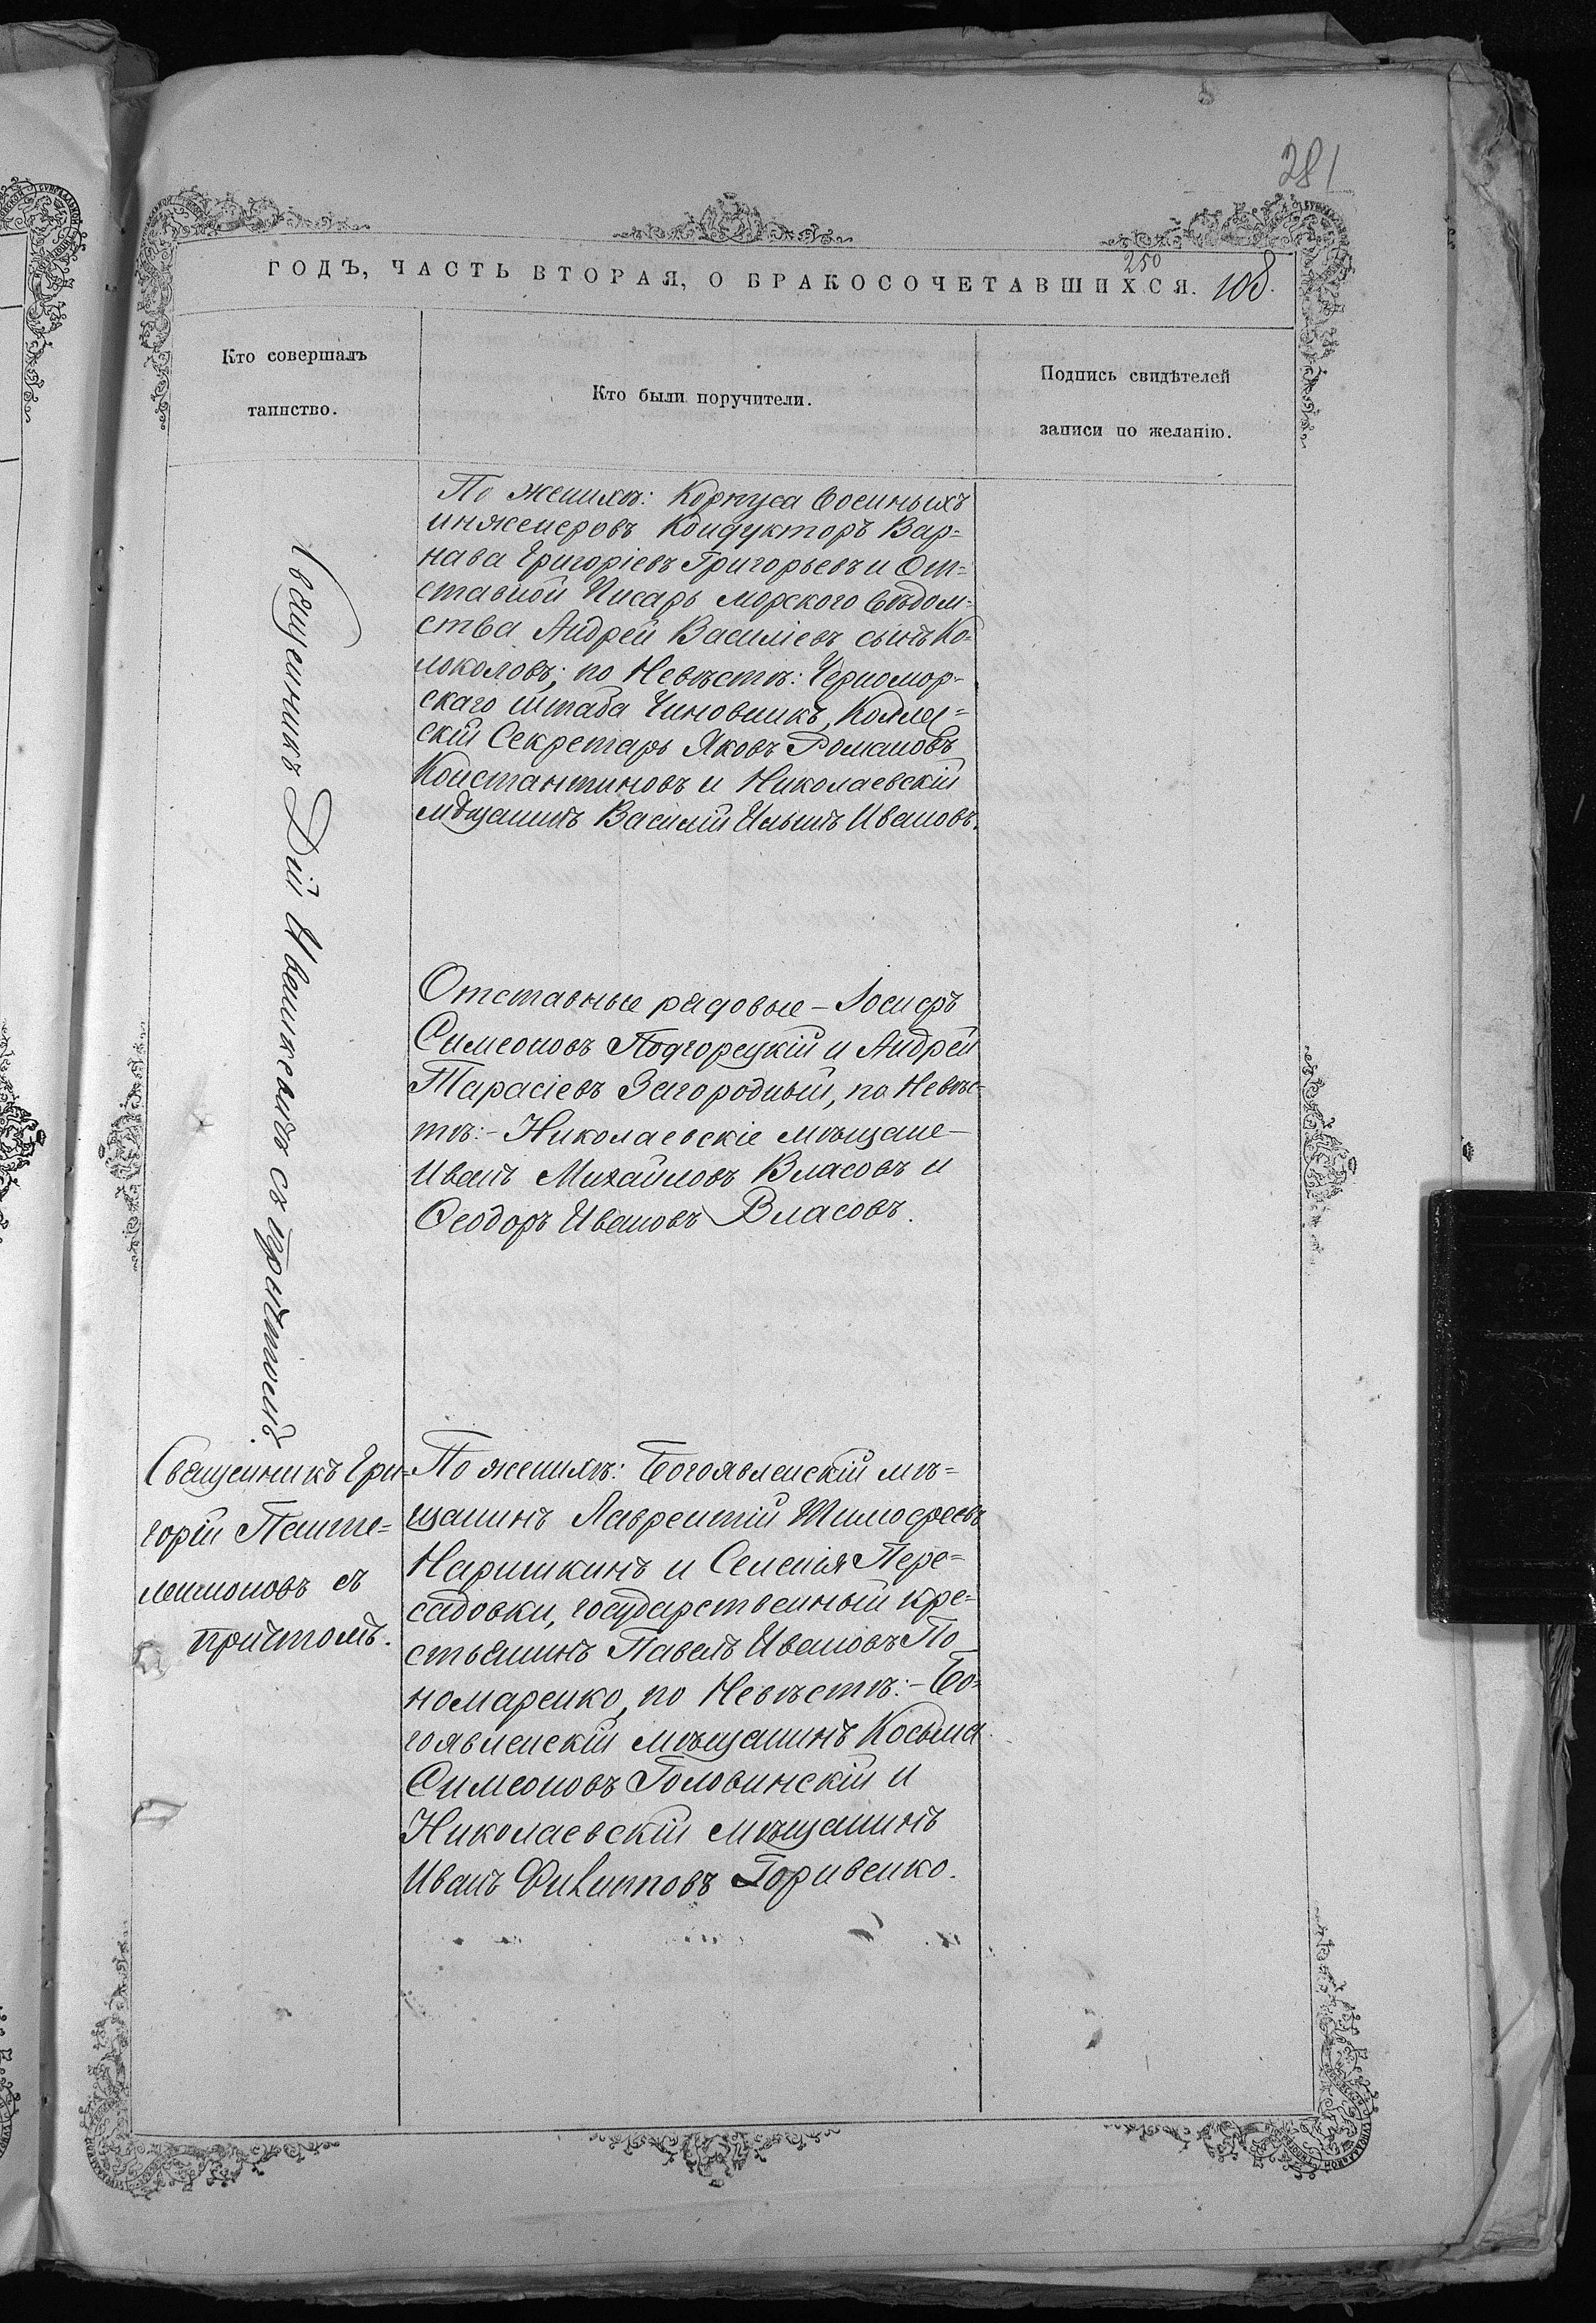 281
250
ГОДЪ, ЧАСТЬ ВТОРАЯ, О БРАКОСОЧЕТАВШИХСЯ. 108.
Кто совершалъ
таинство.
Кто были поручители.
Подпись свидѣтелей
записи по желанію.
По женихѣ: Корпуса Военныхъ
инженеровъ Кондукторъ Вар=
нава Григоріевъ Григорьевъ и От=
ставной Писарь морского вѣдом=
ства Андрей Василіевъ сынъ Ко=
локоловъ; по Невѣстѣ: Черномор-
скаго штаба Чиновникъ,
скій Секретарь Яковъ Романовъ
Константиновъ и Николаевскій
мѣщанинъ Василій Ильинъ Ивановъ.
Священникъ Дій съ причтомъ.
Отставные рядовые - Іосифъ
Симеоновъ Подгорецкій и Андрей
Тарасіевъ Загородный, по Невѣс-
тѣ: - Николаевскіе мѣщане -
Иванъ Михайловъ Власовъ и
Ѳеодоръ Ивановъ Власовъ.
Священникъ Гри-
горій Панте=
леимоновъ съ
причтомъ.
По женихѣ: Богоявленскій мѣ=
щанинъ Лаврентій Тимофеевъ
Наришкинъ и Селенія Пере=
садовки, государственный кре=
стьянинъ Павелъ Ивановъ По
номаренко, по Невѣстѣ: - Бо=
гоявленскій мѣщанинъ Косьма
Симеоновъ Головинскій и
Николаевскій мѣщанинъ
Иванъ Филипповъ Горивенко.